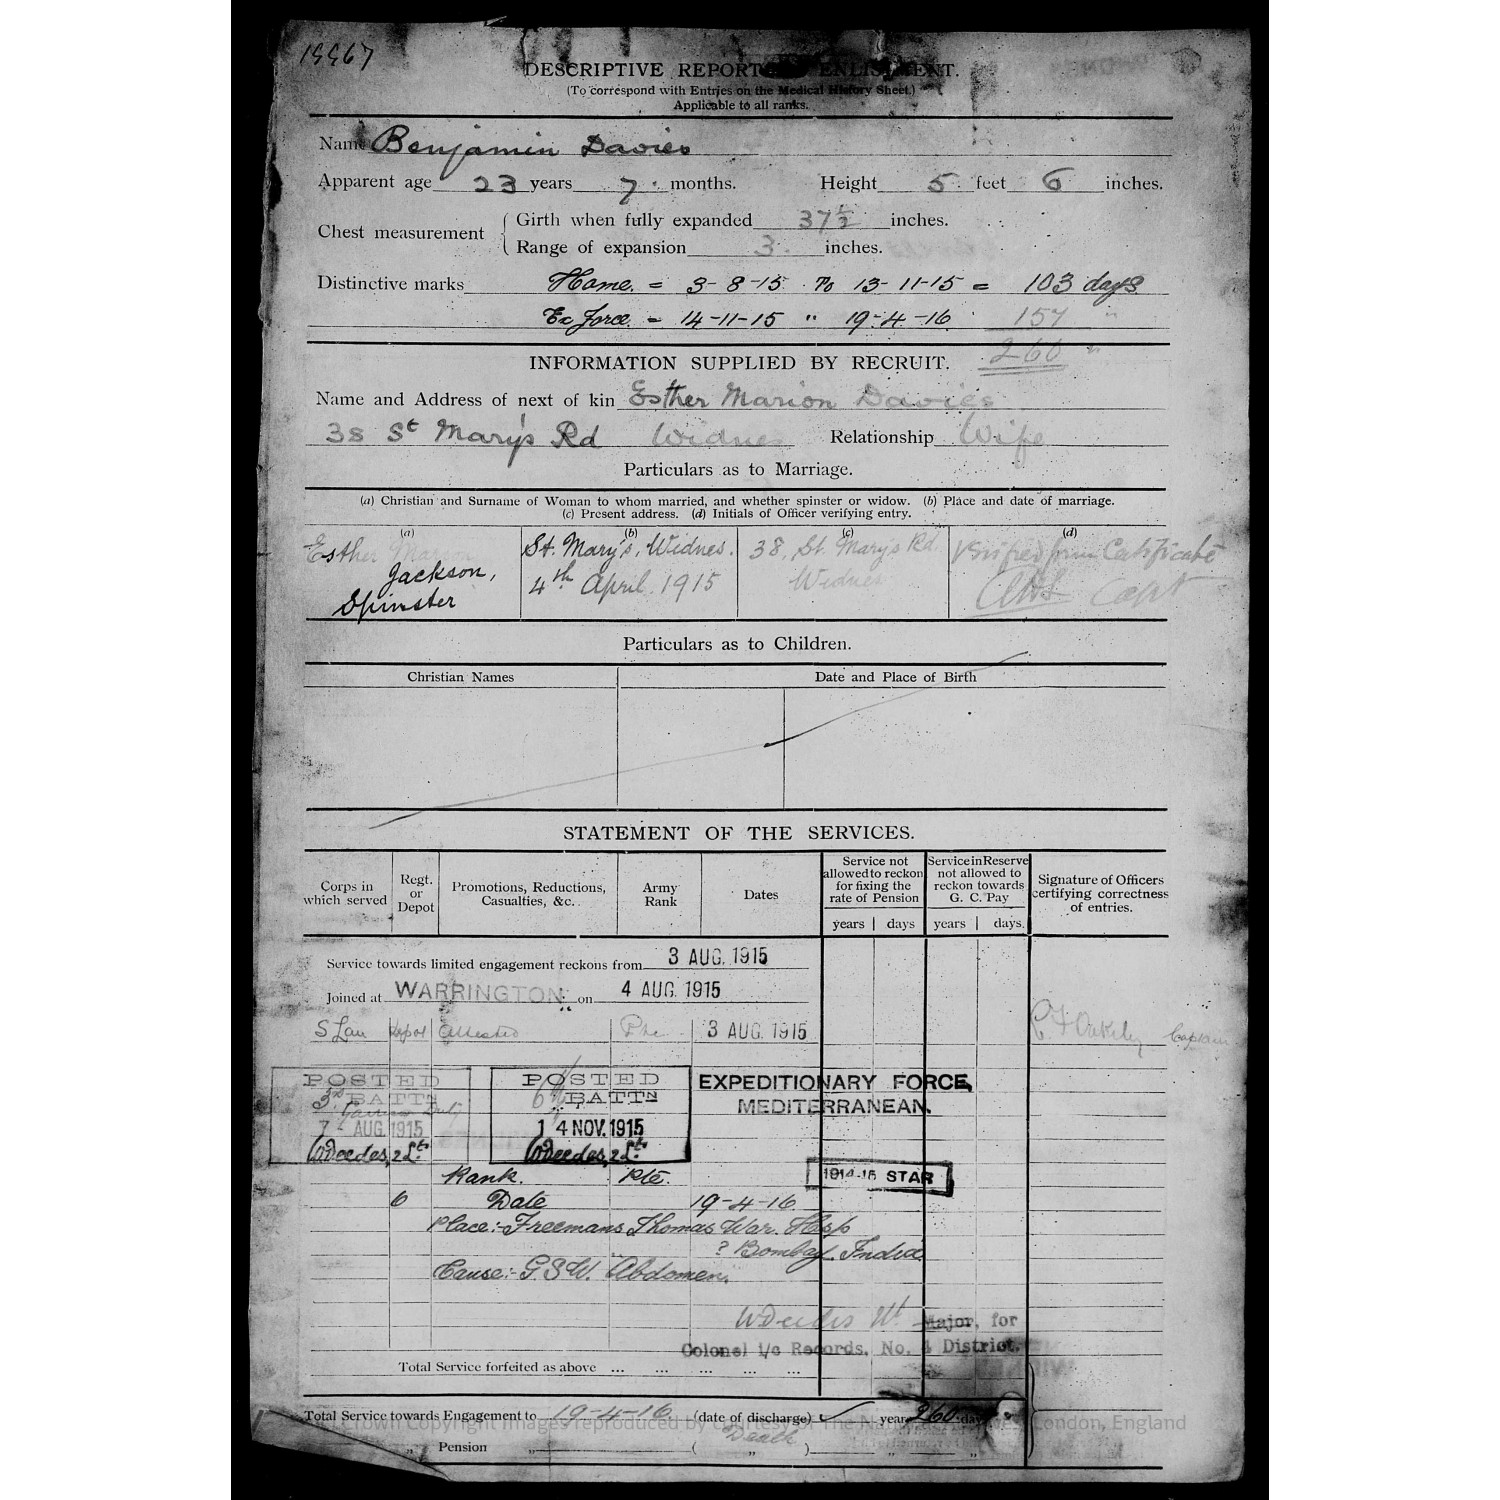 19967
DESCRIPTIVE REPORT ENLISTMENT.
(To correspond with Entries on the Medical History Sheet.)
Applicable to all ranks.
Name Benjamin Davies
Apparent age 23 years 7 months. Height 5 feet 6 inches.
Chest measurement { Girth when fully expanded 37½ inches.
Range of expansion 3 inches.
Distinctive marks Home. = 3-8-15 To 13-11-15 = 103 days
Ex Force. = 14-11-15 " 19-4-16 157 "
260 "
INFORMATION SUPPLIED BY RECRUIT.
Name and Address of next of kin Esther Marion Davies
38 St Mary's Rd Widnes Relationship Wife
Particulars as to Marriage.
(a) Christian and Surname of Woman to whom married, and whether spinster or widow. (b) Place and date of marriage.
(c) Present address. (d) Initials of Officer verifying entry.
(a) (b) (c) (d)
Esther Marion Jackson, Spinster
St. Mary's, Widnes. 4th April 1915
38, St. Mary's Rd. Widnes
Verified from Certificate Capt
Particulars as to Children.
Christian Names Date and Place of Birth
STATEMENT OF THE SERVICES.
Corps in which served
Regt. or Depot
Promotions, Reductions, Casualties, &c.
Army Rank
Dates
Service not allowed to reckon for fixing the rate of Pension
years days
Service in Reserve not allowed to reckon towards G. C. Pay
years days.
Signature of Officers certifying correctness of entries.
Service towards limited engagement reckons from 3 AUG. 1915
Joined at WARRINGTON on 4 AUG. 1915
S Lan Depot Attested Pte 3 AUG. 1915 Captain
POSTED
3rd BATTN
7 AUG 1915
WDeedes, 2 Lt.
POSTED
6th BATTN
14 NOV. 1915
WDeedes, 2 Lt.
EXPEDITIONARY FORCE,
MEDITERRANEAN.
1914-15 STAR
Rank. Pte.
6 Date 19-4-16
Place:- Freemans Thomas War. Hosp
? Bombay. India
Cause:- G.S.W. Abdomen.
Major, for
Colonel i/c Records, No. 4 District.
Total Service forfeited as above ... ... ... ... ...
Total Service towards Engagement to 19-4-16 (date of discharge) years 260 days
" Pension " ( Death " ) " "
Crown Copyright Images reproduced by courtesy of The National Archives, London, England